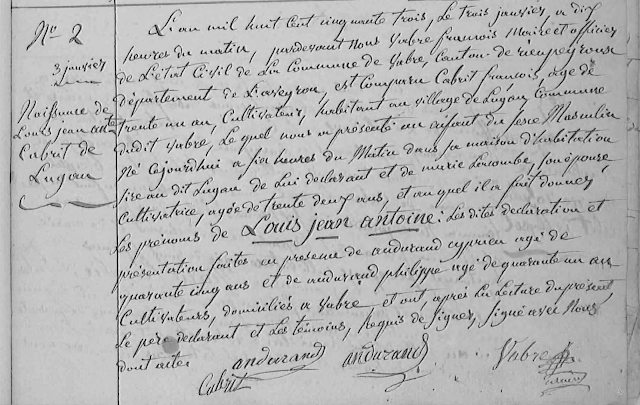 Nº 2
3 janvier
Naissance de
Louis jean ante
Cabrit de
Lugan
L'an mil huit cent cinquante trois, Le trois janvier, a dix
heures du matin, pardevant Nous Vabre françois Maire et officier
de L'état Civil de La Commune de Vabre, Canton de rieupeyrouse
Département de L'aveyron, est comparu Cabrit françois, age de
trente un an, Cultivateur, habitant au village de Lugan Commune
dudit Vabre, Le quel nous a présenté un enfant du sexe Masculin
Né Cejourdhui a six heures du Matin dans sa maison d'habitation
sise au dit Lugan de Lui déclarant et de marie Lacombe, son épouse
Cultivatrice, agée de trente deux ans, et au quel il a fait donner
Les prénoms de Louis jean antoine: Les dites déclaration et
présentation faites en presence de andurand cyprien agé de
quarante cinq ans et de andurand philippe agé de quarante un an
Cultivateurs, domiciliés a Vabre et ont après La Lecture du présent
Le pere declarant et Les témoins, requis de signer, signé avec Nous
dont acte.
Cabrit andurand andurand Vabre